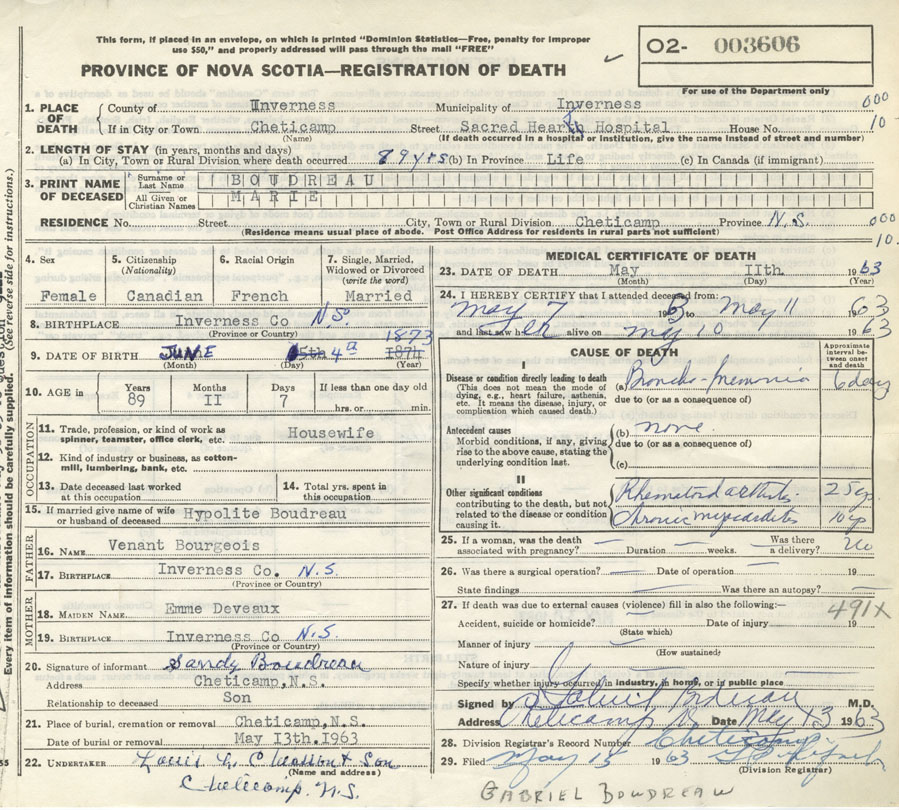 This form, if placed in an envelope, on which is printed "Dominion Statistics—Free, penalty for improper
use $50," and properly addressed will pass through the mail "FREE"
PROVINCE OF NOVA SCOTIA—REGISTRATION OF DEATH
O2- 003606
For use of the Department only
1. PLACE OF DEATH
County of Inverness Municipality of Inverness 000
If in City or Town Cheticamp Street Sacred Heart Hospital House No. 10
(Name) (If death occurred in a hospital or institution, give the name instead of street and number)
2. LENGTH OF STAY (in years, months and days)
(a) In City, Town or Rural Division where death occurred 89yrs (b) In Province Life (c) In Canada (if immigrant)
3. PRINT NAME OF DECEASED
Surname or Last Name BOUDREAU
All Given or Christian Names MARIE
RESIDENCE No. Street City, Town or Rural Division Cheticamp Province N.S. 000
(Residence means usual place of abode. Post Office Address for residents in rural parts not sufficient) 10.
4. Sex 5. Citizenship (Nationality) 6. Racial Origin 7. Single, Married, Widowed or Divorced (write the word)
Female Canadian French Married
8. BIRTHPLACE Inverness Co N.S.
(Province or Country)
9. DATE OF BIRTH JUNE 4th 1873 1874
(Month) (Day) (Year)
10. AGE in Years Months Days If less than one day old
89 II 7 hrs. or min.
OCCUPATION
11. Trade, profession, or kind of work as spinner, teamster, office clerk, etc. Housewife
12. Kind of industry or business, as cotton-mill, lumbering, bank, etc.
13. Date deceased last worked at this occupation
14. Total yrs. spent in this occupation
15. If married give name of wife or husband of deceased Hypolite Boudreau
FATHER
16. NAME Venant Bourgeois
17. BIRTHPLACE Inverness Co. N.S.
(Province or Country)
MOTHER
18. MAIDEN NAME Emme Deveaux
19. BIRTHPLACE Inverness Co N.S.
(Province or Country)
20. Signature of informant Sandy Boudreau
Address Cheticamp,N.S.
Relationship to deceased Son
21. Place of burial, cremation or removal Cheticamp,N.S.
Date of burial or removal May 13th.1963
22. UNDERTAKER Louis L. Chiasson & Son
(Name and address)
Cheticamp. N.S.
MEDICAL CERTIFICATE OF DEATH
23. DATE OF DEATH May IIth. 1963
(Month) (Day) (Year)
24. I HEREBY CERTIFY that I attended deceased from:
May 7 1963 to May 11 1963
and last saw her alive on May 10 1963
CAUSE OF DEATH
Approximate interval between onset and death
I
Disease or condition directly leading to death
(This does not mean the mode of dying, e.g., heart failure, asthenia, etc. It means the disease, injury, or complication which caused death.)
(a) Broncho-pneumonia 6 days
due to (or as a consequence of)
Antecedent causes
Morbid conditions, if any, giving rise to the above cause, stating the underlying condition last.
(b) none
due to (or as a consequence of)
(c)
II
Other significant conditions contributing to the death, but not related to the disease or condition causing it.
Rhematoid arthritis 25 yr.
Chronic myocarditis 10 yr
25. If a woman, was the death associated with pregnancy? — Duration — weeks. Was there a delivery? no
26. Was there a surgical operation? — Date of operation — 19
State findings Was there an autopsy? —
27. If death was due to external causes (violence) fill in also the following:— 491X
Accident, suicide or homicide? Date of injury 19
(State which)
Manner of injury
(How sustained)
Nature of injury
Specify whether injury occurred in industry, in home, or in public place
Signed by Gabriel Boudreau M.D.
Address Cheticamp Date May 13 1963
28. Division Registrar's Record Number Cheticamp
29. Filed May 15 1963
(Division Registrar)
GABRIEL BOUDREAU
Every item of information should be carefully supplied. (See reverse side for instructions.)